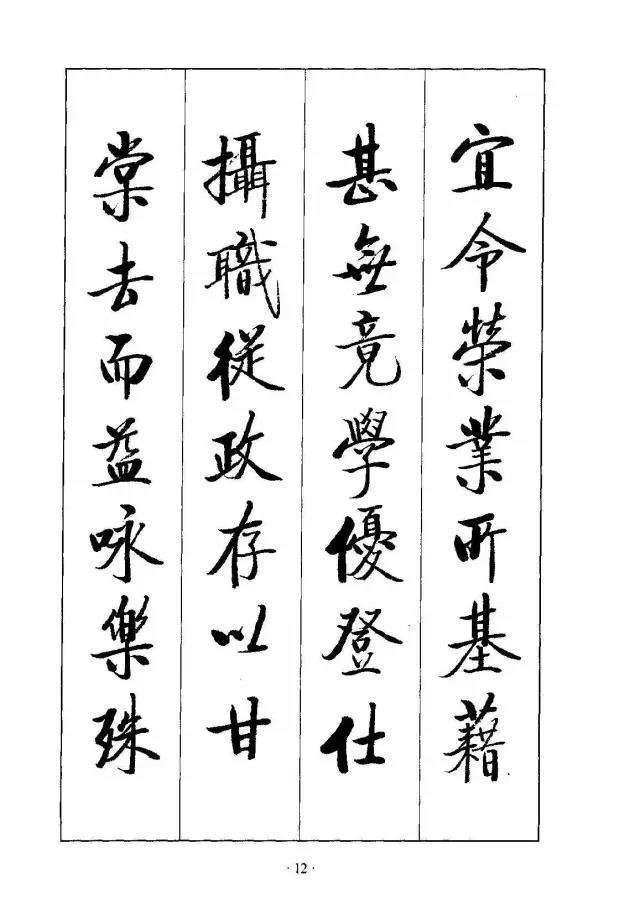 宜令榮業所基藉
甚無竟學優登仕
攝職從政存以甘
棠去而益咏樂殊
·12·